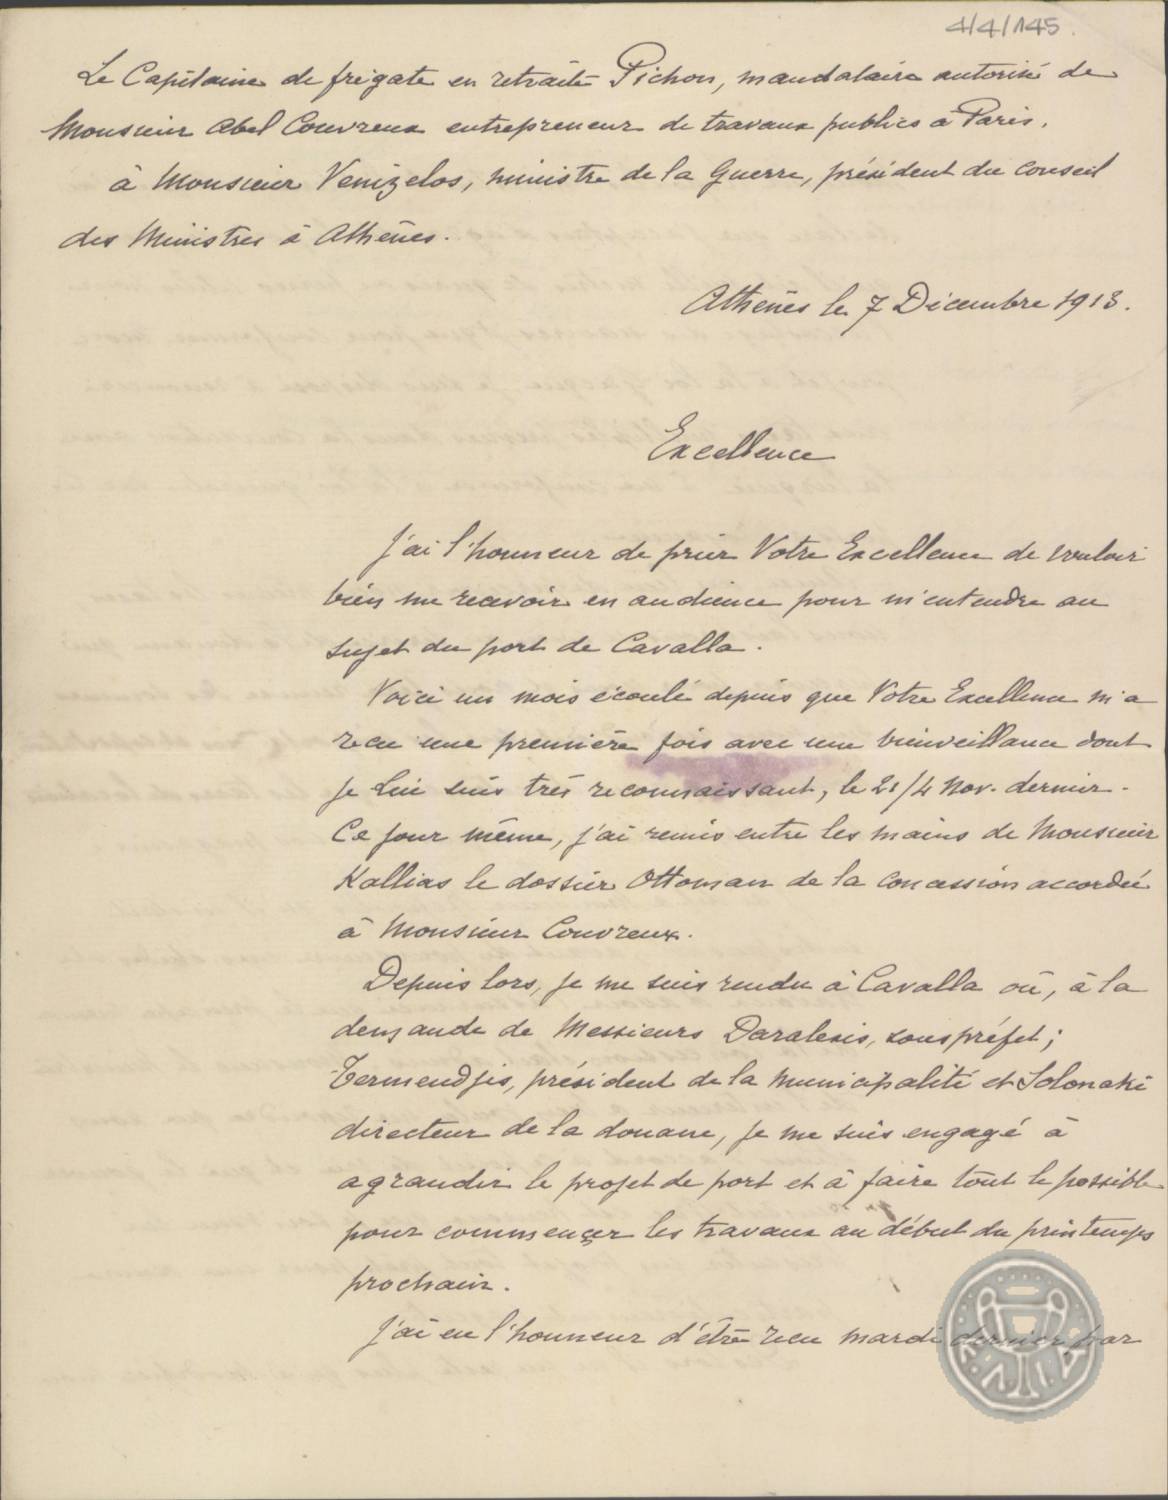 4/4/145.
Le Capitaine de frégate en retraite Pichon, mandataire autorisé de
Monsieur Abel Couvreux entrepreneur de travaux publics à Paris.
à Monsieur Venizelos, ministre de la Guerre, président du conseil
des Ministres à Athènes.
Athènes le 7 Décembre 1913.
Excellence
J'ai l'honneur de prier Votre Excellence de vouloir
bien me recevoir en audience pour m'entendre au
sujet du port de Cavalla.
Voici un mois écoulé depuis que Votre Excellence m'a
reçu une première fois avec une bienveillance dont
je Lui suis très reconnaissant, le 21/4 Nov. dernier.
Ce jour même, j'ai remis entre les mains de Monsieur
Kallias le dossier Ottoman de la concession accordée
à Monsieur Couvreux.
Depuis lors, je me suis rendu à Cavalla où, à la
demande de Messieurs Daralexis, sous préfet;
Termendjis, président de la Municipalité et Solonaki
directeur de la douane, je me suis engagé à
agrandir le projet de port et à faire tout le possible
pour commencer les travaux au début du printemps
prochain.
J'ai eu l'honneur d'être reçu mardi dernier par